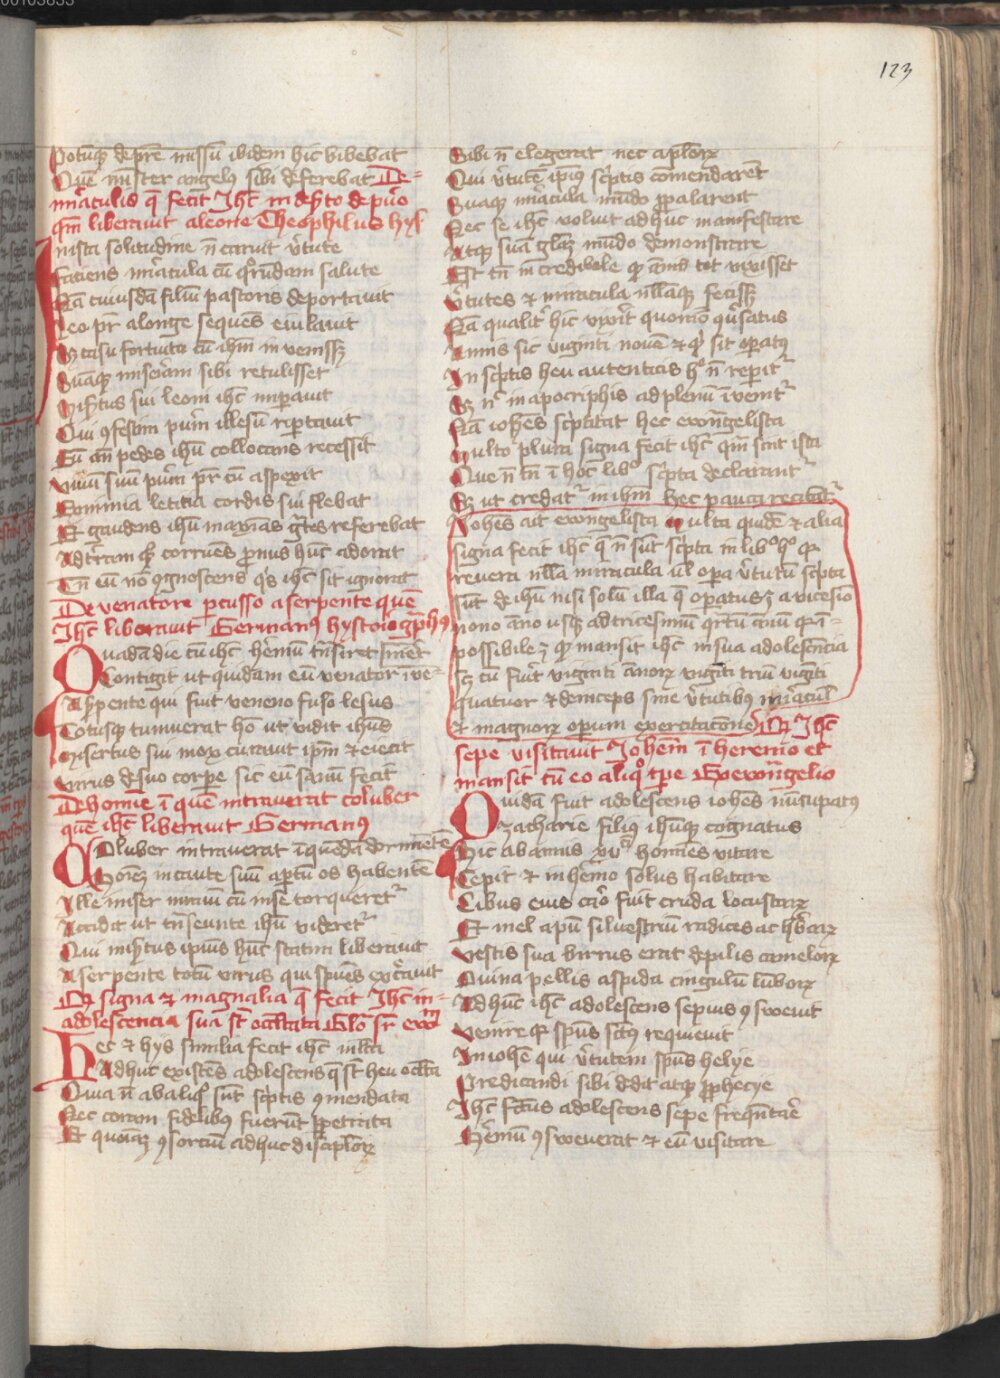 00103833
123
Potūqꝫ de pr̄e missū ibidem hic bibebat
Quē mister angelꝯ sibi deferebat De
mirāculis q̄ fecit Ihc̄ in dep̄to de puo
qm̄ liberavit a leone Theophilus hys
In ista solitudine n̄ caruit v̄tute
Faciens mirācula cū qͦrūdam salute
Nā cuiusdā filiū pastoris deportavit
Leo pr̄ a longe sequēs eiulavit
Et casu fortuito cū ihm̄ in venissꝫ
Suāqꝫ miseriam sibi retulisset
Misertus sui leoni ihc̄ imperavit
Qui ꝯfestim puerū illesū reportavit
Eū an̄ pedes ihū collocans recessit
Vivū suū pueꝝ pr̄ cū aspexit
Pre nimia letitia cordis sui flebat
Et gaudens ihū maximas grātes referebat
Ad terram qꝫ corruēs pronus hūc adorat
Tn̄ eū nō ꝯgnoscens qͥs ihc̄ sit ignorat
De venatore ꝑcusso a serpente quē
Ihc̄ liberavit Germanꝯ hystoiogͣphꝯ
Quadā die cū ihc̄ herēmū trāsiret semel
Contigit ut quidam eū venator ive-
A serpente qui fuit veneno fuso lesus
Totusqꝫ tumuerat hō ut vidit ihūs
Misertus sui mox curavit ipm̄ et eiecit
Virus de suo corpe sic eū sanū fecit
De homīe ī quē intraverat coluber
quē ihc̄ liberavit Germanꝯ
Coluber intraverat ī quēdā dormiētē
Homīeꝫ incaute suū aꝑtū os habentē
Ille miser nimiū cū in se torqueretᷣ
Accidit ut trāseunte ihū videretᷣ
Qui misertus ipius hūc statim liberavit
A serpente totū virus qui spūēs extͣxit
Qꝫ signa et magnalia q̄ fecit Ihc̄ in
adolescencia sua st̄ occultata Glo sr̄ ewā
Hec et hys similia fecit ihc̄ multa
Adhuc existēs adolescens q̄ st̄ heu oculta
Quia n̄ ab aliqͦ sūt scriptis ꝯmendata
Nec coram fidelibꝯ fuerūt ꝑpetrata
Et quoniaꝫ ꝯsorciū adhuc disciploꝝ
Sibi n̄ elegerat nec aploꝝ
Qui v̄tutē ipius sc̄ptis comendarēt
Suaqꝫ mirācula mūdo ꝓpalarent
Nec se ihc̄ voluit adhuc manifestare
Atqꝫ suā gloriā mūdo demonstrare
Est tn̄ incredibile qꝫ annis tot vixisset
V̄tutes et miracula nullāqꝫ fecissꝫ
Nā qualitᷣ hic vixerit quomō quersatus
Annis sic viginti novē et qͥd sit operatꝯ
In scriptis heu autenticis hͦ n̄ reperitᷣ
Sꝫ nͬ in apocriphis ad plenū īvenitᷣ
Nā iohēs sc̄ptitat hec evangelista
Multo plura signa fecit ihc̄ qm̄ sunt ista
Que n̄ tn̄ ī hoc libͦ sc̄pta declarantᷣ
Sꝫ ut credatᷣ in ihm̄ hec pauca recitātᷣ
Iohēs ait evangelista multa quidē et alia
signa fecit ihc̄ q̄ n̄ sūt sc̄pta in libͦ hͦ qꝫ
revera nulla miracula ul̄ oꝑa v̄tutū sc̄pta
sūt de ihū nisi solū illa q̄ oꝑatusꝫ a vicesīo
nono ano usqꝫ ad tricesimū qrtū annū qꝫ ī-
possibileꝫ qꝫ mansit ihc̄ in sua adolescēcia
sꝫ cū fuit viginti annoꝝ viginti triū viginti
quatuor et deinceps sine v̄tutibꝯ miracul
et magnoꝝ oꝑum exercitacione Qꝫ Ihc̄
sepe visitavit Iohēm ī heremo et
mansit cū eo aliqͦ tpe Ex ewāngelio
Quidā fuit adolescens iohēs nūcupatꝯ
Zacharie filiꝯ ihūqꝫ cognatus
Hic ab annis xvͣ homīes vitare
Cepit et in heremo solus habitare
Cibus eius caro fuit cruda locustaꝝ
Et mel apū silvestriū radices ac herbaꝝ
Vestis sua birrus erat de pilis cameloꝝ
Ovina pellis aspida cingulū lūboꝝ
Ad hūc ihc̄ adolescens sepius ꝯswevit
Venire qꝫ spūs sctꝯ requievit
In iohē qui v̄tutem spūs helye
Predicandi sibi dedit atqꝫ ꝓphecye
Ihc̄ factus adolescens sepe freqntare
Heremū ꝯsweverat et eū visitare